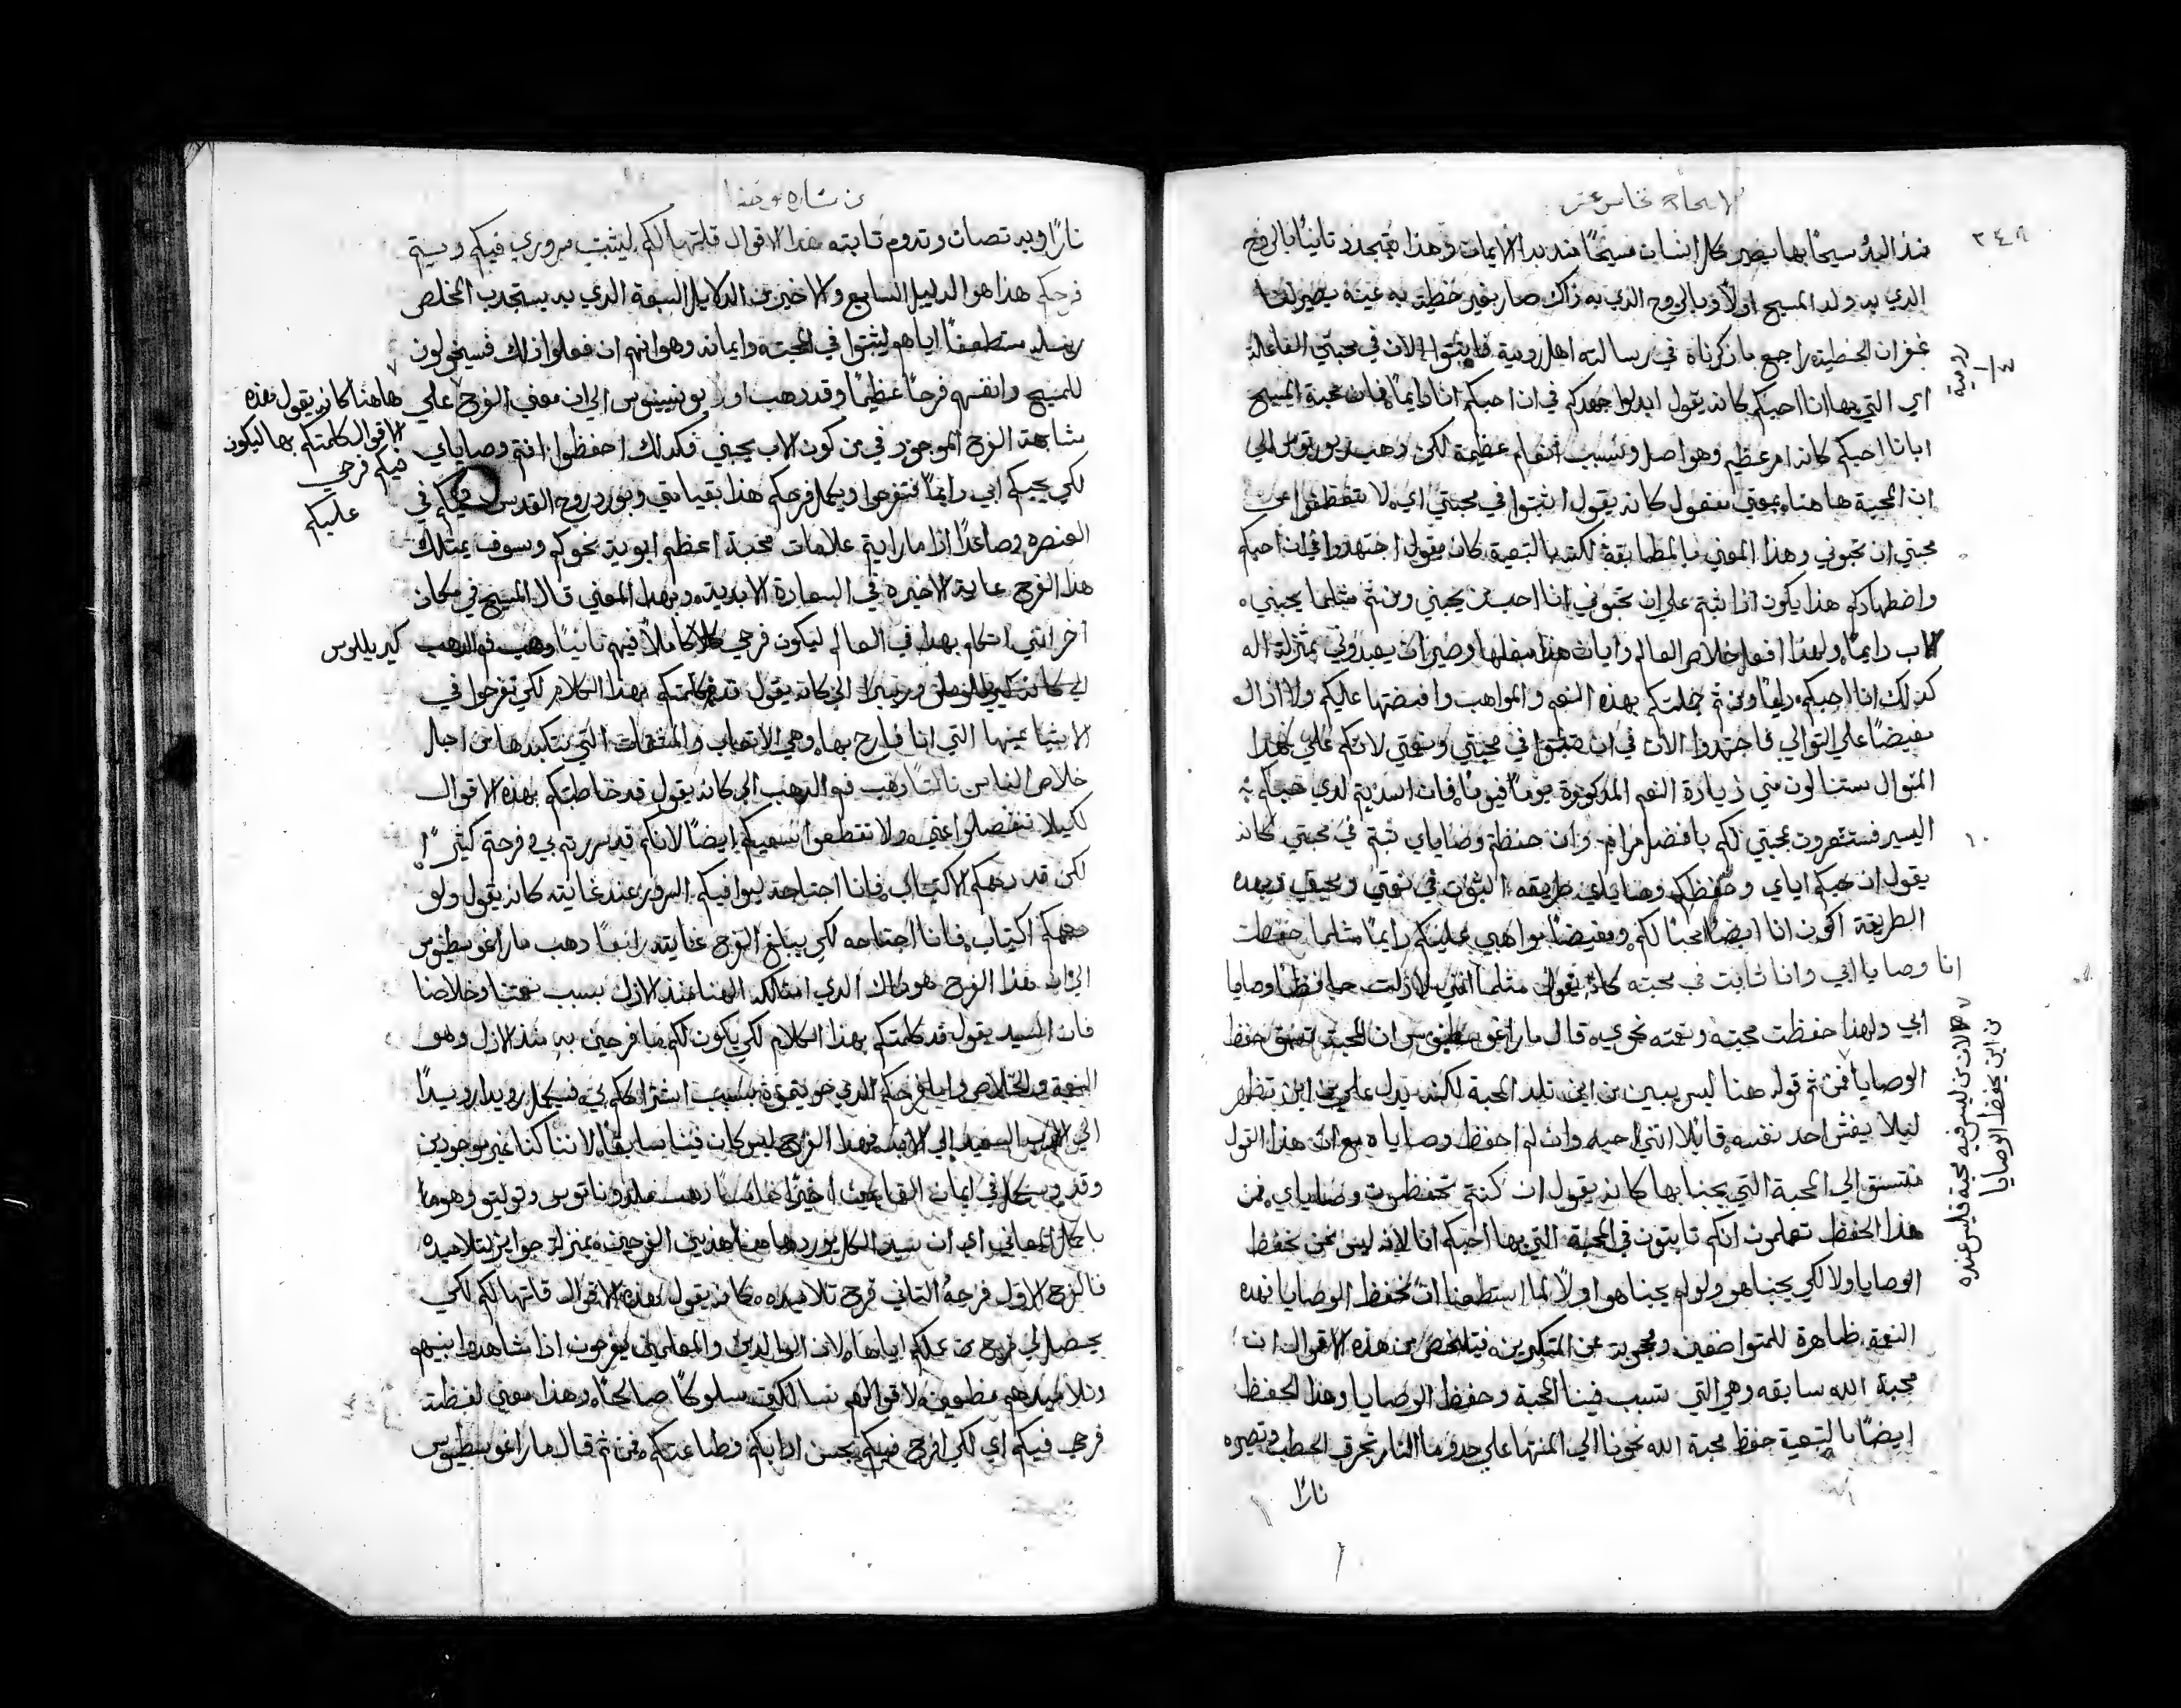 الاصحاح الخامس عشر
٣٤٨
منذ البدء مسيحًا بها يصير كل انسان مسيحًا منذ بدا الايمان وهذا يتجدد ثانيًا بالروح
الذي به ولد المسيح اولاً وبالروح الذي به ذاك صار بغير خطية به عينه يصير لنا
غفران الخطية راجع ما ذكرناه في رسالته اهل رومية فاثبتوا الان في محبتي الفاعلة
رومية
اي التي بها انا احبكم كانه يقول ابدلوا جهدكم في ان احبكم انا دايمًا فان محبة المسيح
ايانا احبكم كانه امر عظيم وهو اصل وسبب انعام عظيمة لكن ذهب
ان المحبة هاهنا بمعني مفعول كانه يقول اثبتوا في محبتي اي لا تنقطعوا عن
محبتي ان تحبوني وهذا المعني بالمطابقة لكنه بالتبعية كانه يقول اجتهدوا في ان احبكم
واضطهادكم هذا يكون اذا ثبتم علي ان تحبوني انا احب من يحبني ومن ثم مثلما يحبني
الاب دايمًا ولهذا افعل خلاص العالم وايات هذا مبلغها وصيرات يعبدوني بمنزلة اله
كذلك انا احبكم دايمًا ومن ثم جللتكم بهذه النعم والمواهب وافيضها عليكم ولا ازال
مفيضًا علي التوالي فاجتهدوا الان في ان تثبتوا في محبتي ونعمتي لانكم علي هذا
المنوال ستنالون مني زيادة النعم المذكورة يومًا فيومًا فان اسديتم لدي حبكم
اليسير فستشعرون بمحبتي لكم بافضل مرام وان حفظتم وصاياي ثبتم في محبتي كانه
١٠
يقول ان حبكم اياي وحفظكم وصاياي طريقه الثبوت في نعمتي وبهذه
الطريقة اكون انا ايضًا محبًا لكم ومفيضًا مواهبي عليكم دايمًا مثلما حفظت
انا وصايا ابي وانا ثابت في محبته كانه يقول مثلما انني لازلت حافظًا وصايا
ابي ولهذا حفظت محبته ونعمته نحوي قال ماراغوسطينوس ان المحبة تسبق حفظ
الوصايا فمن ثم قوله هنا ليس يبين من اين تلد المحبة لكنه يدل علي من اين تظهر
لان من ليس فيه محبة فليس عنده
من اين يحفظ الوصايا
ليلا يغش احد نفسه قايلا انني احبه وان لم احفظ وصاياه مع ان هذا القول
منتسق الي المحبة التي يحبنا بها كانه يقول ان كنتم تحفظون وصاياي فمن
هذا الحفظ تعلمون انكم ثابتون في المحبة التي بها احبكم انا لانه ليس نحن نحفظ
الوصايا اولا لكي يحبنا هو ولو لم يحبنا هو اولاً لما استطعنا ان نحفظ الوصايا فهذه
النعمة ظاهرة للمتواضعين ومخفية عن المتكبرين فيتلخص من هذه الاقوال ان
محبة الله سابقه وهي التي تسبب فينا المحبة وحفظ الوصايا وهذا الحفظ
ايضًا بالتبعية حفظ محبة الله نحونا الي المنتها علي حدو ما النار تحرق الحطب وتصيره
نارًا
من بشارة يوحنا
نارًا وبه تصان وتدوم ثابته هذا الاقوال قلتها لكم ليثبت سروري فيكم ويتم
فرحكم هذا هو الدليل السابع والاخير من الدلايل السبعة الذي به يستجذب المخلص
رسله مستطعفًا اياهم ليثبتوا في المحبته وايمانه وهو انهم ان فعلوا ذلك فسيخولون
للمسيح وانفسهم فرحًا عظيمًا وقد ذهب اولا يونسينوس الي ان معني الفرح علي
هاهنا كانه يقول هذه
الاقوال كلمتكم بها ليكون
فيكم فرحي
عليكم
مشابهة الفرح الموجود في من كون الاب يحبني فكذلك احفظوا انتم وصاياي
لكي يحبكم ابي دايمًا فتفرحوا ويكمل فرحكم هذا بقيامتي وبورود روح القدس عليكم في
العنصره وصاعدًا اذا ما رايتم علامات محبة اعظم ابوية نحوكم وسوف يمتلك
هذا الفرح غاية الاخيره في السعادة الابدية وبهذا المعني قال المسيح في مكان
اخر انني اتكلم بهذا في العالم ليكون فرحي كاملاً فيهم ثانيًا ذهب
كيريللوس
الي كانه يقول قد كلمتكم بهذا الكلام لكي تفرحوا في
الاشيا عينها التي انا فارح بها وهي الاتعاب والمشقات التي نتكبدها من اجل
خلاص الناس ثالثًا ذهب فم الذهب الي كانه يقول قد خاطبتكم بهذه الاقوال
لكيلا تنفصلوا عني ولا تقطعوا سعيكم ايضًا لانكم قد سررتم بي وفرحتم كثيرًا
لكن قد دهمكم الاكتياب فانا اجتاحه ليوافيكم السرور عند غايته كانه يقول ولو
دهمكم اكتياب فانا اجتاحه لكي يبلغ الفرح غايته رابعًا ذهب ماراغوسطينوس
الي ان هذا الفرح هو ذاك الذي امتلكه الهنا منذ الازل بسبب نعمتنا وخلاصنا
فان السيد يقول قد كلمتكم بهذا الكلام لكي يكون لكم ما فرحني به منذ الازل وهو
النعمة والخلاص وايا فرحكم الذي حويتموه بسبب اشتراككم بي فيكمل رويدا رويدًا
الي السعيد الي الابد فهذا الفرح ليس كان فينا سابقًا لاننا كنا غير موجودين
وقد بي ايمان اخيرًا خامسًا ذهب ملدوناتوس وتوليتو وهو ما
باكمل المعاني اي ان سيد الكل يورد هاهنا هذين الفرحين بمنزلة جوايز لتلاميذه
فالفرح الاول فرحه الثاني فرح تلاميذه كانه يقول هذه الاقوال قلتها لكم لكي
يحصل لي فرح من عملكم اياها لان الوالدين والمعلمين يفرحون اذا شاهدوا بنيهم
وتلاميذهم مطيعين لاقوالهم سالكين سلوكًا صالحًا وهذا معني لفظة
فرحي فيكم اي لكي افرح فيكم بحسن ادابكم وطاعتكم فمن ثم قال ماراغوسطينوس